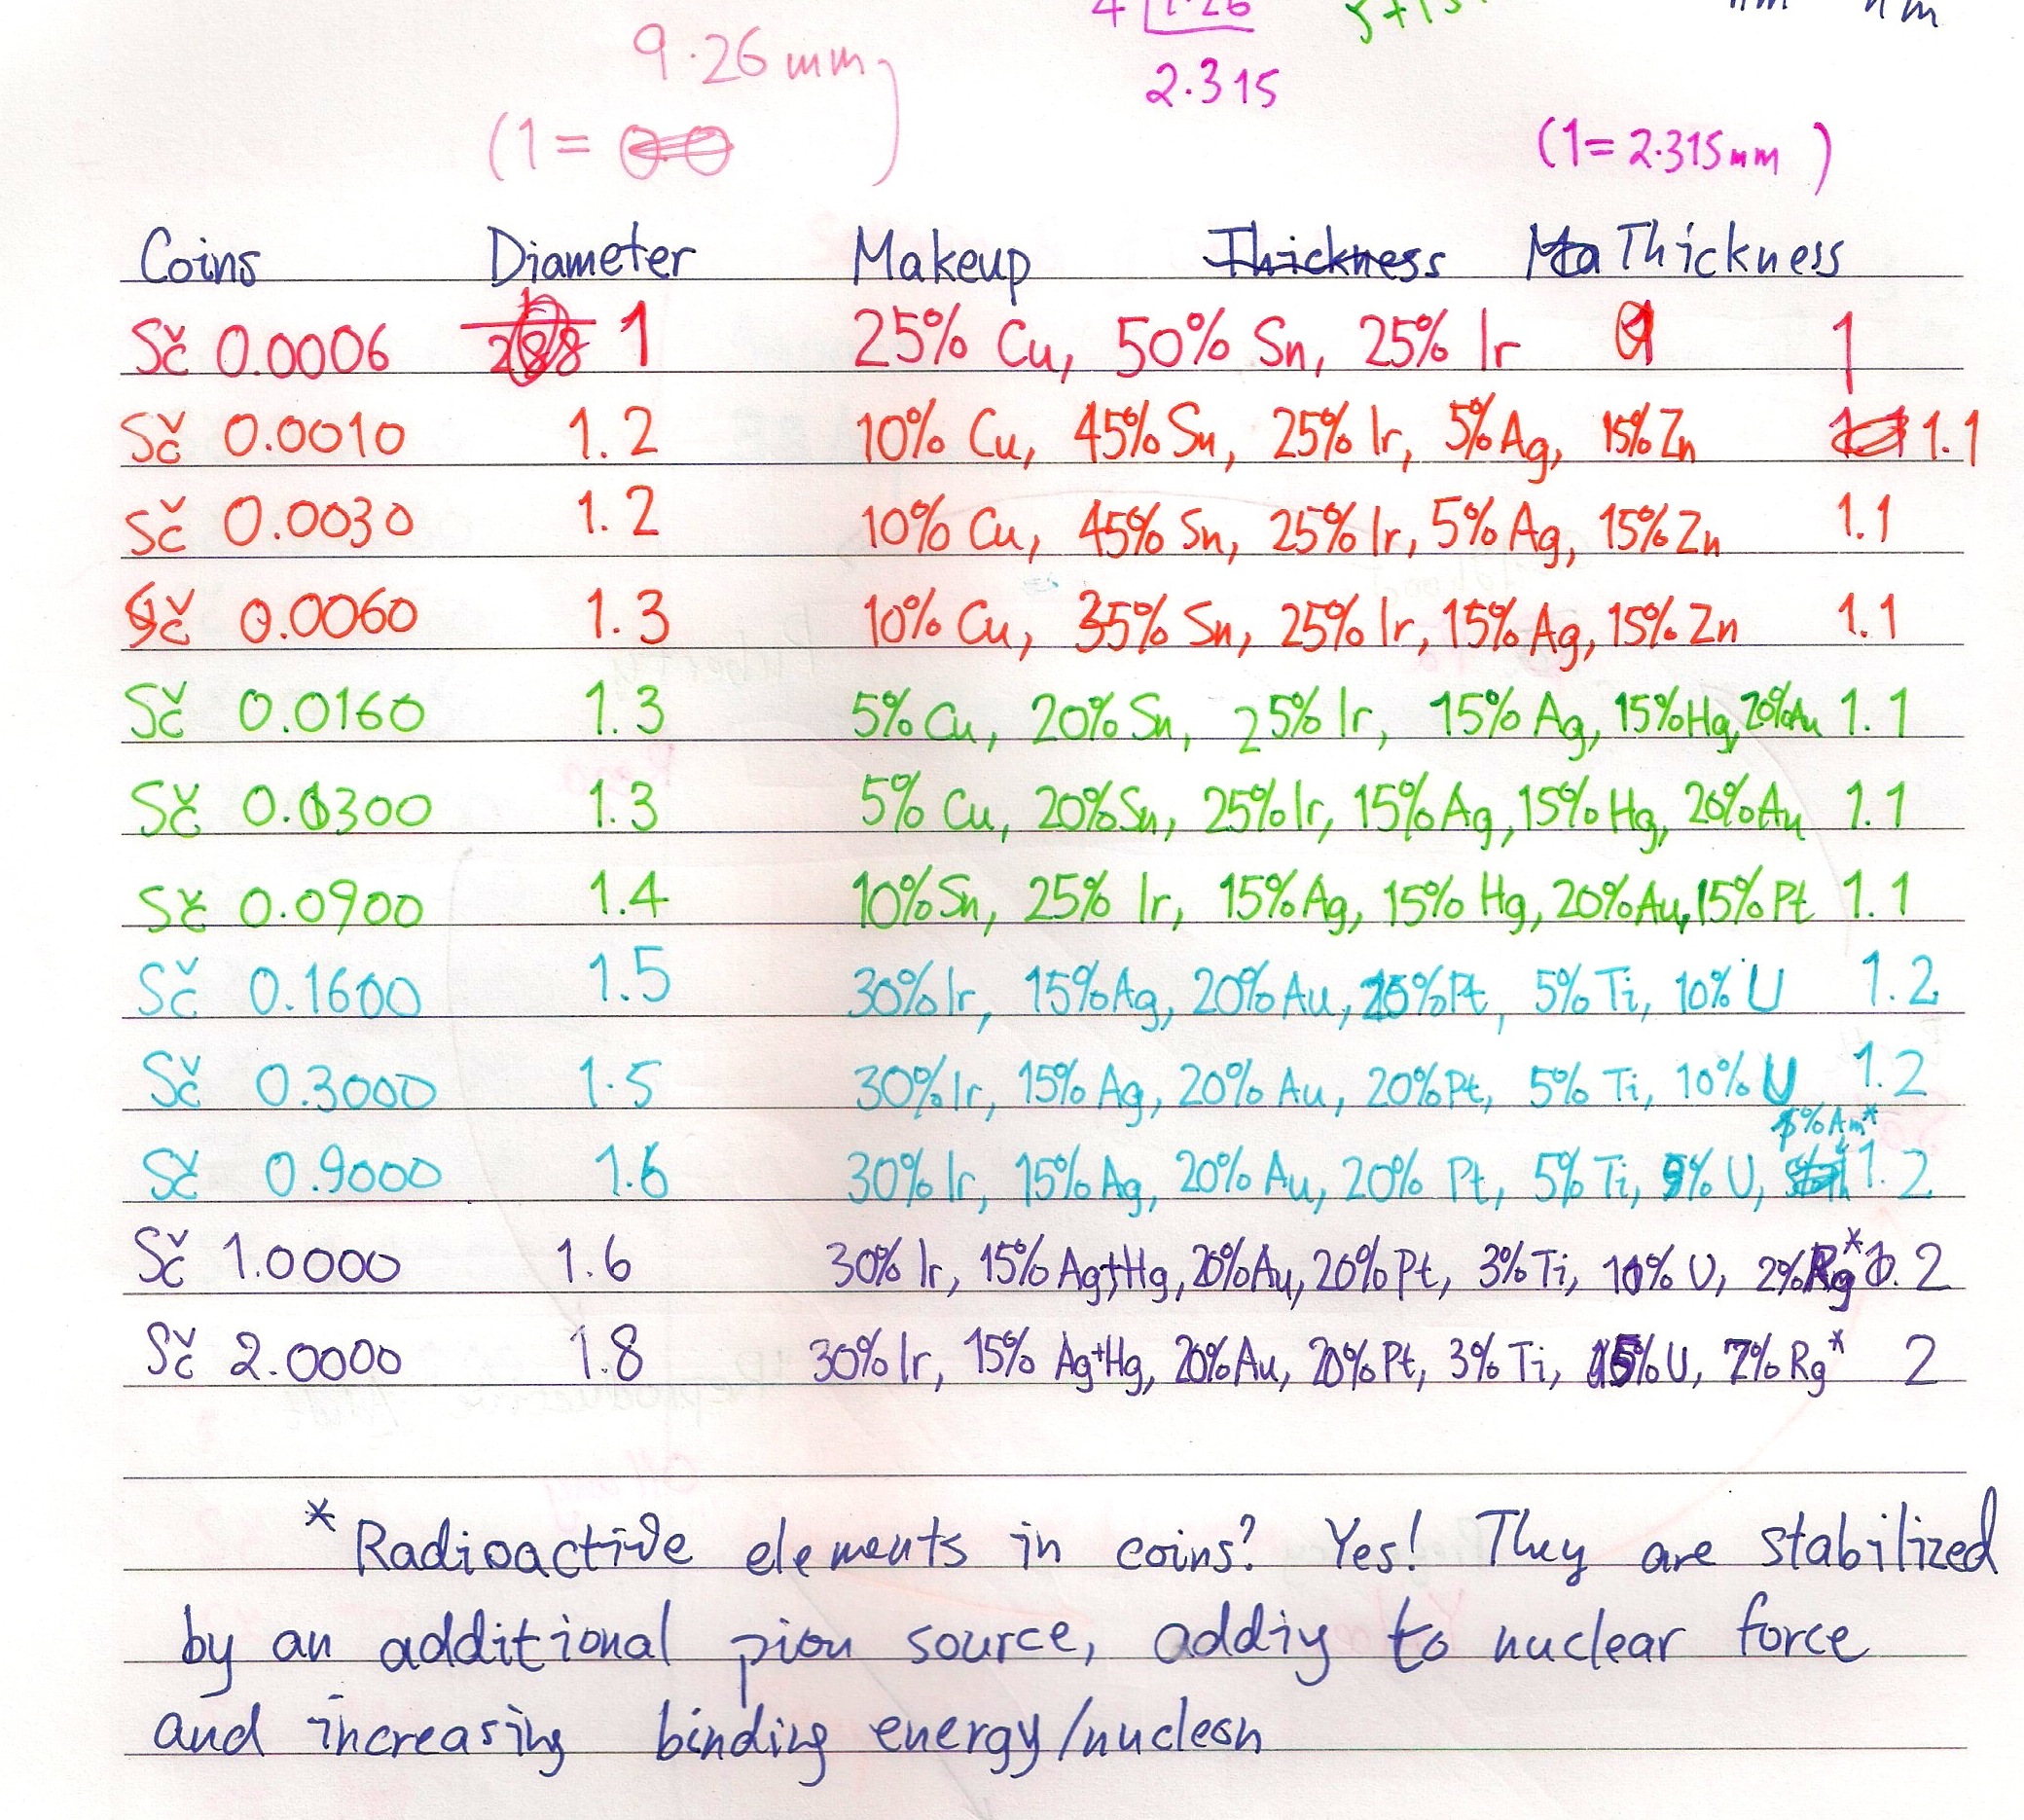 9.26 mm
2.315
(1= )
(1= 2.315mm )
Coins Diameter Makeup Thickness Thickness
Sč 0.0006 1 25% Cu, 50% Sn, 25% Ir 1
Sč 0.0010 1.2 10% Cu, 45% Sn, 25% Ir, 5% Ag, 15% Zn 1.1
Sč 0.0030 1.2 10% Cu, 45% Sn, 25% Ir, 5% Ag, 15% Zn 1.1
Sč 0.0060 1.3 10% Cu, 35% Sn, 25% Ir, 15% Ag, 15% Zn 1.1
Sč 0.0160 1.3 5% Cu, 20% Sn, 25% Ir, 15% Ag, 15% Hg, 20% Au 1.1
Sč 0.0300 1.3 5% Cu, 20% Sn, 25% Ir, 15% Ag, 15% Hg, 20% Au 1.1
Sč 0.0900 1.4 10% Sn, 25% Ir, 15% Ag, 15% Hg, 20% Au, 15% Pt 1.1
Sč 0.1600 1.5 30% Ir, 15% Ag, 20% Au, 20% Pt, 5% Ti, 10% U 1.2
Sč 0.3000 1.5 30% Ir, 15% Ag, 20% Au, 20% Pt, 5% Ti, 10% U 1.2
Sč 0.9000 1.6 30% Ir, 15% Ag, 20% Au, 20% Pt, 5% Ti, 9% U, 1% Am* 1.2
Sč 1.0000 1.6 30% Ir, 15% Ag+Hg, 20% Au, 20% Pt, 3% Ti, 10% U, 2% Rg* 1.2
Sč 2.0000 1.8 30% Ir, 15% Ag+Hg, 20% Au, 20% Pt, 3% Ti, 5% U, 7% Rg* 2
* Radioactive elements in coins? Yes! They are stabilized
by an additional pion source, addiy to nuclear force
and increasing binding energy/nucleon